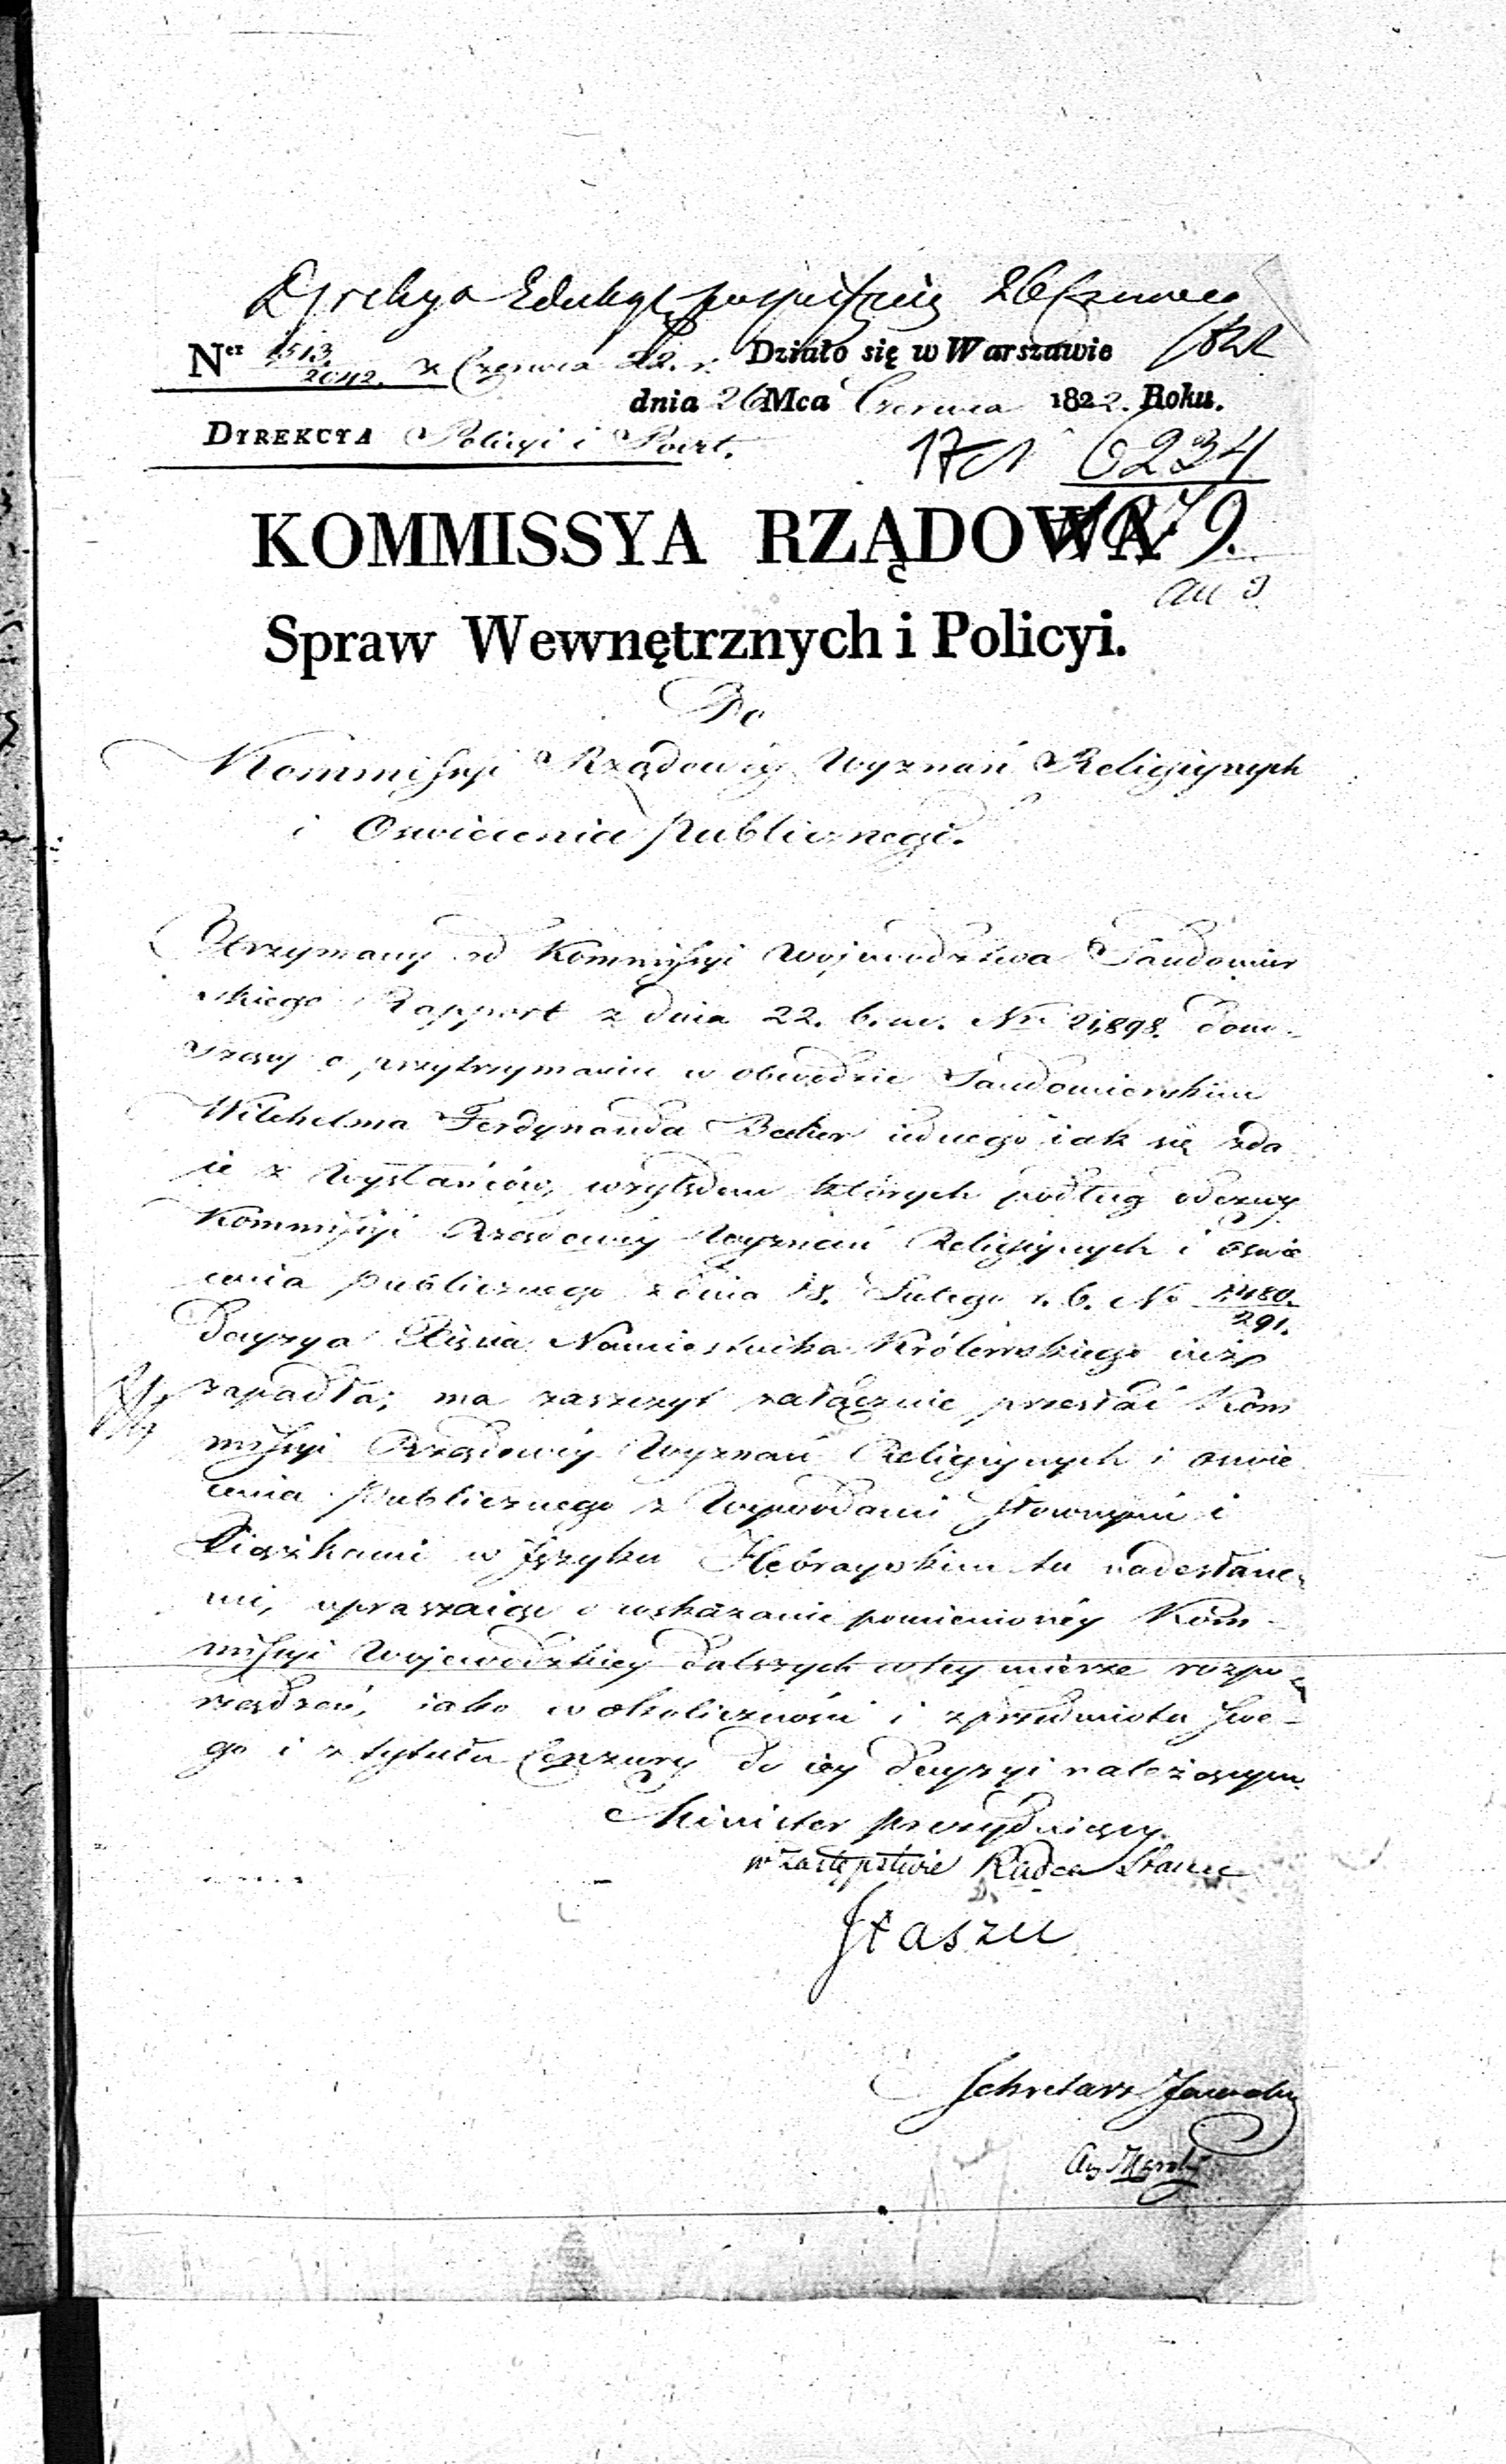 Dyrekcya Edukacyi 26 Czerwca
Ner 1513/2042. z Czerwca 22. r. Działo się w Warszawie 1822
dnia 26 Mca Czerwca 1822. Roku.
DYREKCYA Policyi i Poczt.
17 6234
KOMMISSYA RZĄDOWA
Spraw Wewnętrznych i Policyi.
Do
Kommissyi Rządowey Wyznań Religiynych
i Oswiecenia Publicznego.
Otrzymany od Kommissyi Województwa Sandomir
skiego Rapport z dnia 22. b. m. Nr 21,898. dono-
szący o przytrzymaniu w obwodzie Sandomierskim
Wilchelma Ferdynanda Becker iednego iak się zda
ie z Wysłańców, względem których podług odezwy
Kommissyi Rządowey Wyznań Religiynych i Oświe
cenia publicznego z dnia 18. Lutego r. b. No 1480./291.
Decyzya Xięcia Namiestnika Królewskiego iuż
zapadła; ma zaszczyt załącznie przesłać Kom
missyi Rządowey Wyznań Religiynych i oswie
cenia Publicznego z Wywodami słownymi i
Xiążkami w Języku Hebrayskim tu nadesłane
mi, upraszaiąc o wskazanie pomienioney Kom-
missyi Wojewódzkiey dalszych w tey mierze rozpo
rządzeń, iako w okoliczności i z przedmiotu swe-
go i z tytułu Cenzury do iey decyzyi należącym.
Minister Prezyduiący
w zastępstwie Radca Stanu
Staszic
Sekretarz Jeneralny